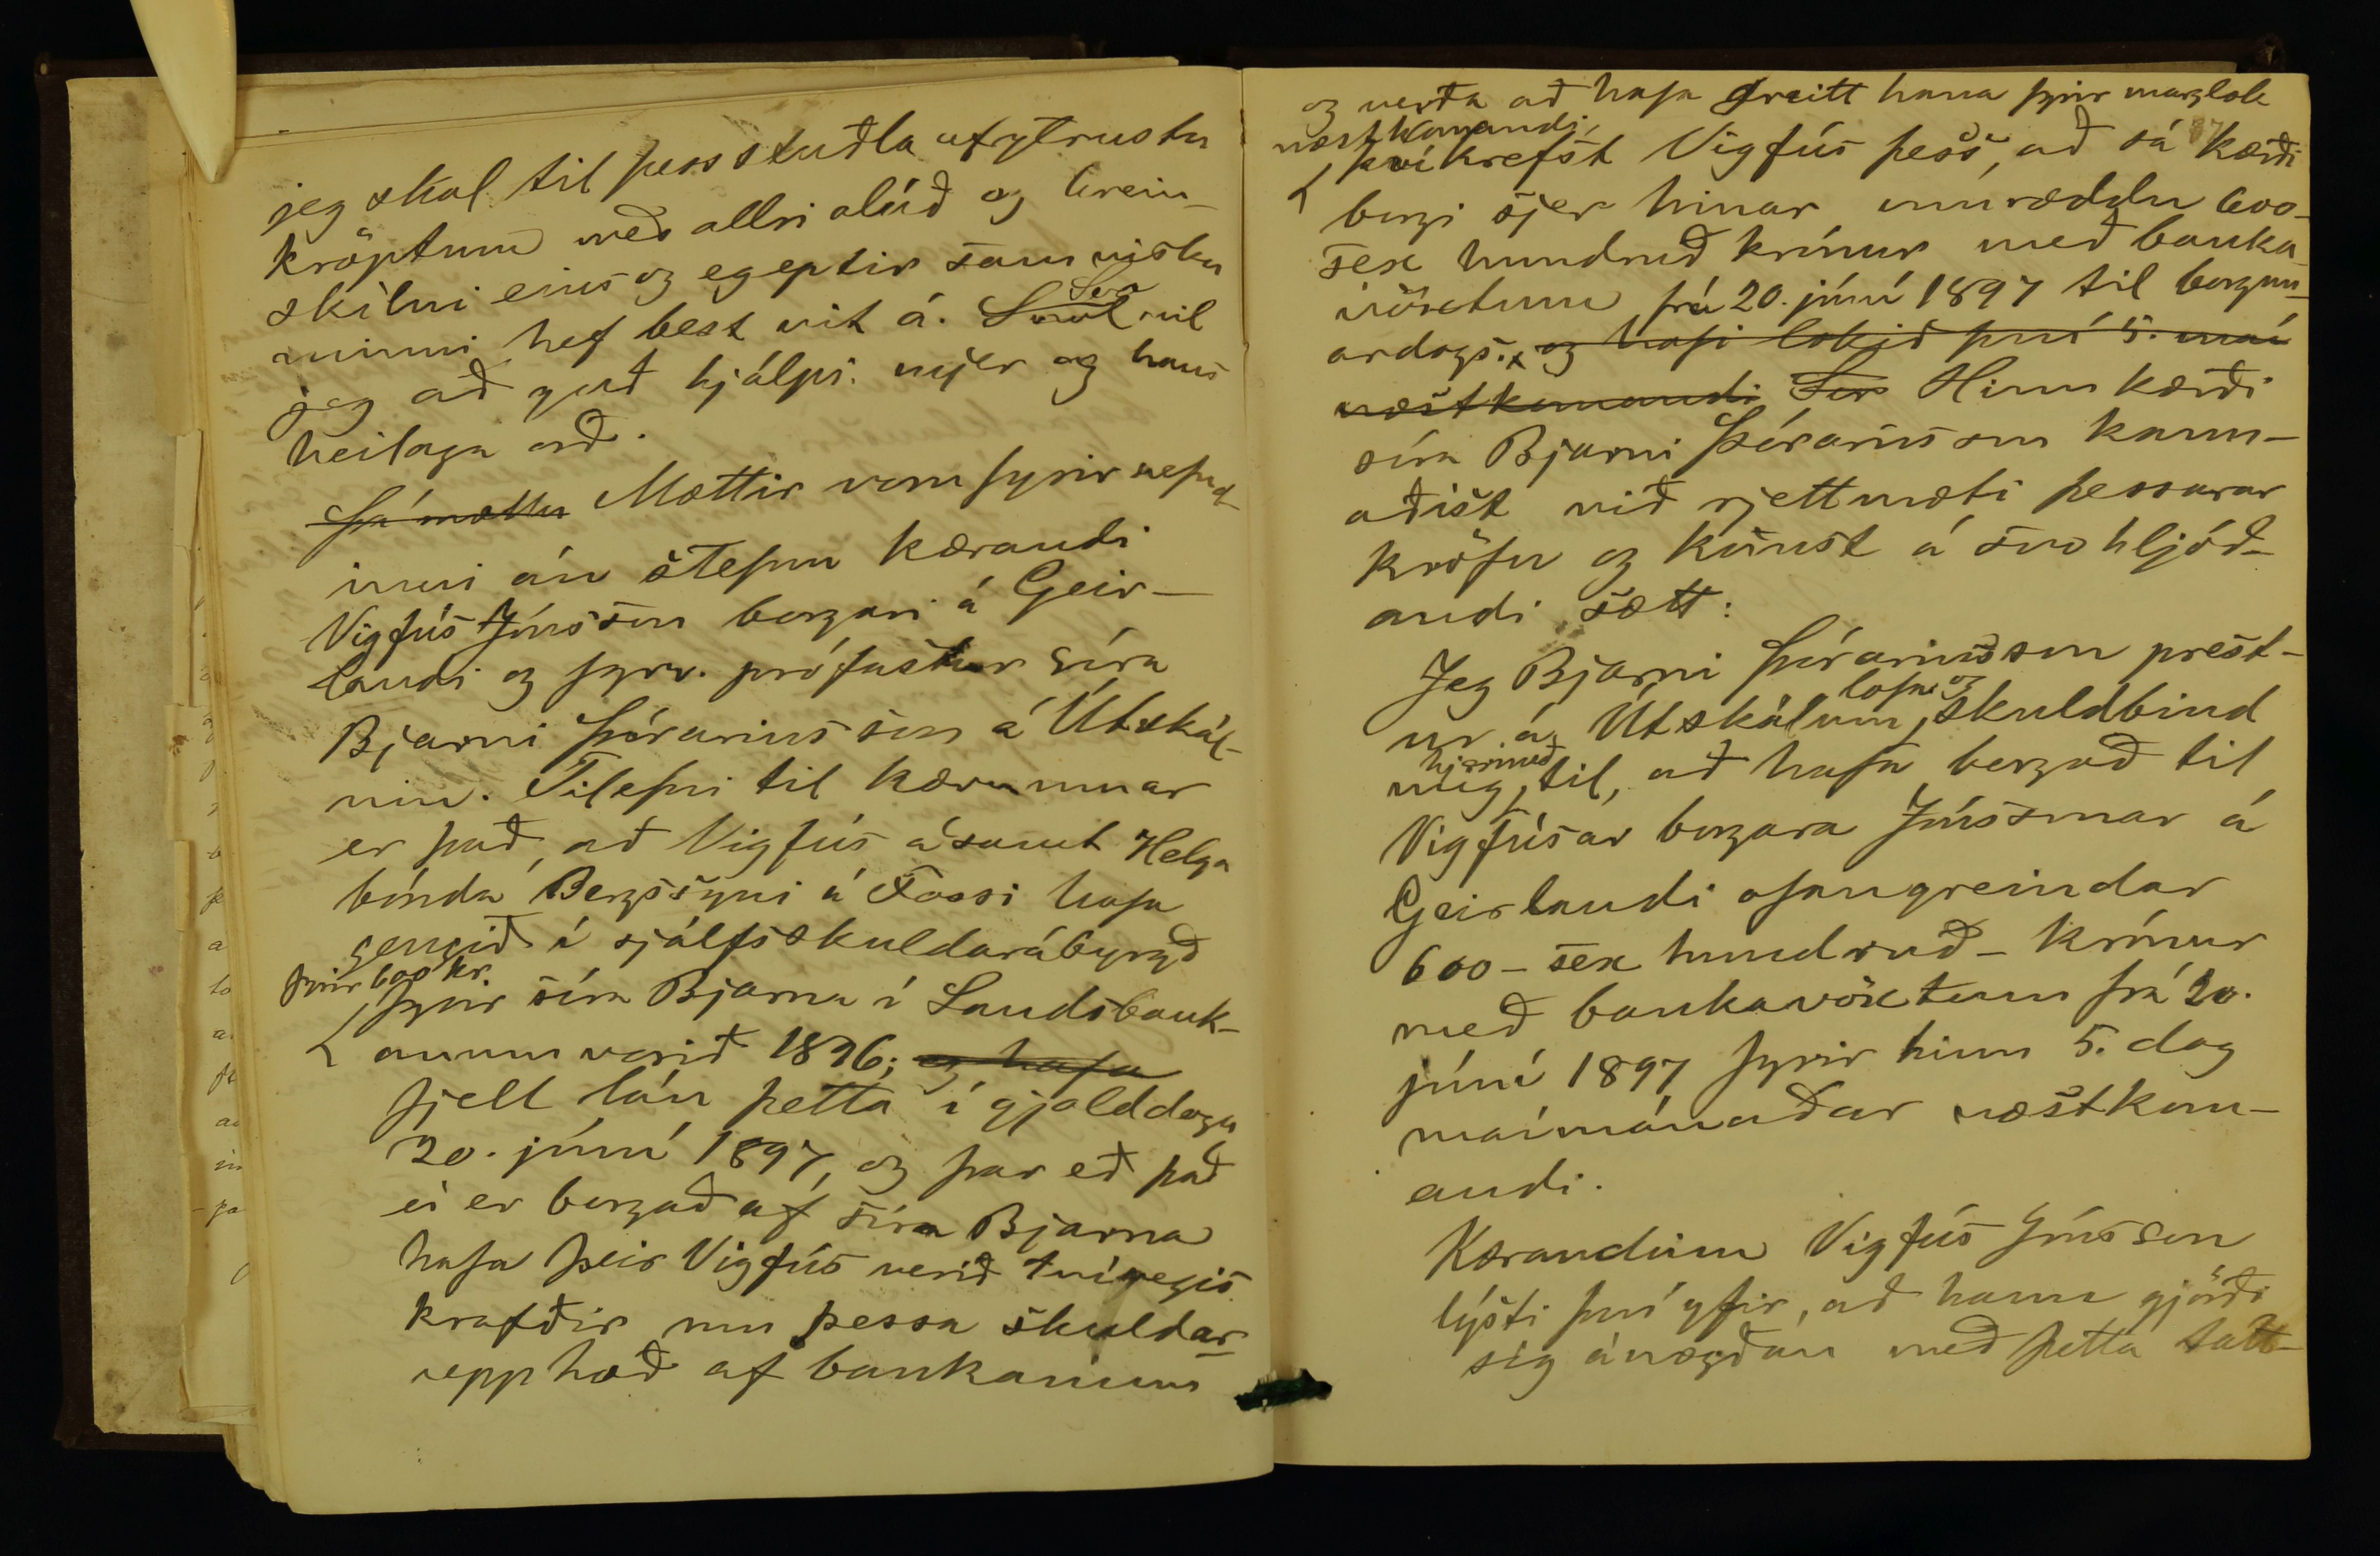 jeg skal til þess stuðla af ýtrustu
kröptum með allri alúð og hrein-
skilni eins og eg eptir samvisku
minni hef best vit á. Svo vil
jeg að guð hjálpi mjer og hans
heilaga orð.
Þá mættu Mættir voru fyrir nefnd-
inni án stefnu kærandi
Vigfús Jónsson borgari á Geir-
landi og fyrv. prófastur síra
Bjarni Þórarinsson á Útskál-
um. Tilefni til kærunnar
er það, að Vigfús ásamt Helga
bónda Bergssyni á Fossi hafa
gengið í sjálfsskuldarábyrgð
fyrir 600 kr.
fyrir síra Bjarna í Landsbank-
anum vorið 1896; og hafa
fjell lán þetta í gjalddaga
20. júní 1897, og þar eð það
ei er borgað af síra Bjarna
hafa þeir Vigfús verið tvívegis
krafðir um þessa skuldar-
upphæð af bankanum
og verða að hafa greitt hana fyrir marzlok
næstkomandi
því krefst Vigfús þess, að sá kærði
borgi sjer hinar umræddu 600-
sex hundruð krónur með banka
vöxtum frá 20. júní 1897 til borgun-
ardags. og hafi lokið því 5. maí
næstkomandi Svo Hinn kærði
síra Bjarni Þórarinsson kann-
aðist við rjettmæti þessarar
kröfu og komst á svohljóð-
andi sætt:
Jeg Bjarni Þórarinsson prest-
lofa og
ur á Útskálum, skuldbind
hjermeð
mig, til, að hafa borgað til
Vigfúsar borgara Jónssonar á
Geirlandi ofangreindar
600 - sex hundruð - krónur
með bankavöxtum frá 20.
júní 1897 fyrir hinn 5. dag
maímánaðar næstkom-
andi.
Kærandinn Vigfús Jónsson
lýsti því yfir, að hann gjörði
sig ánægðan með þetta satt-